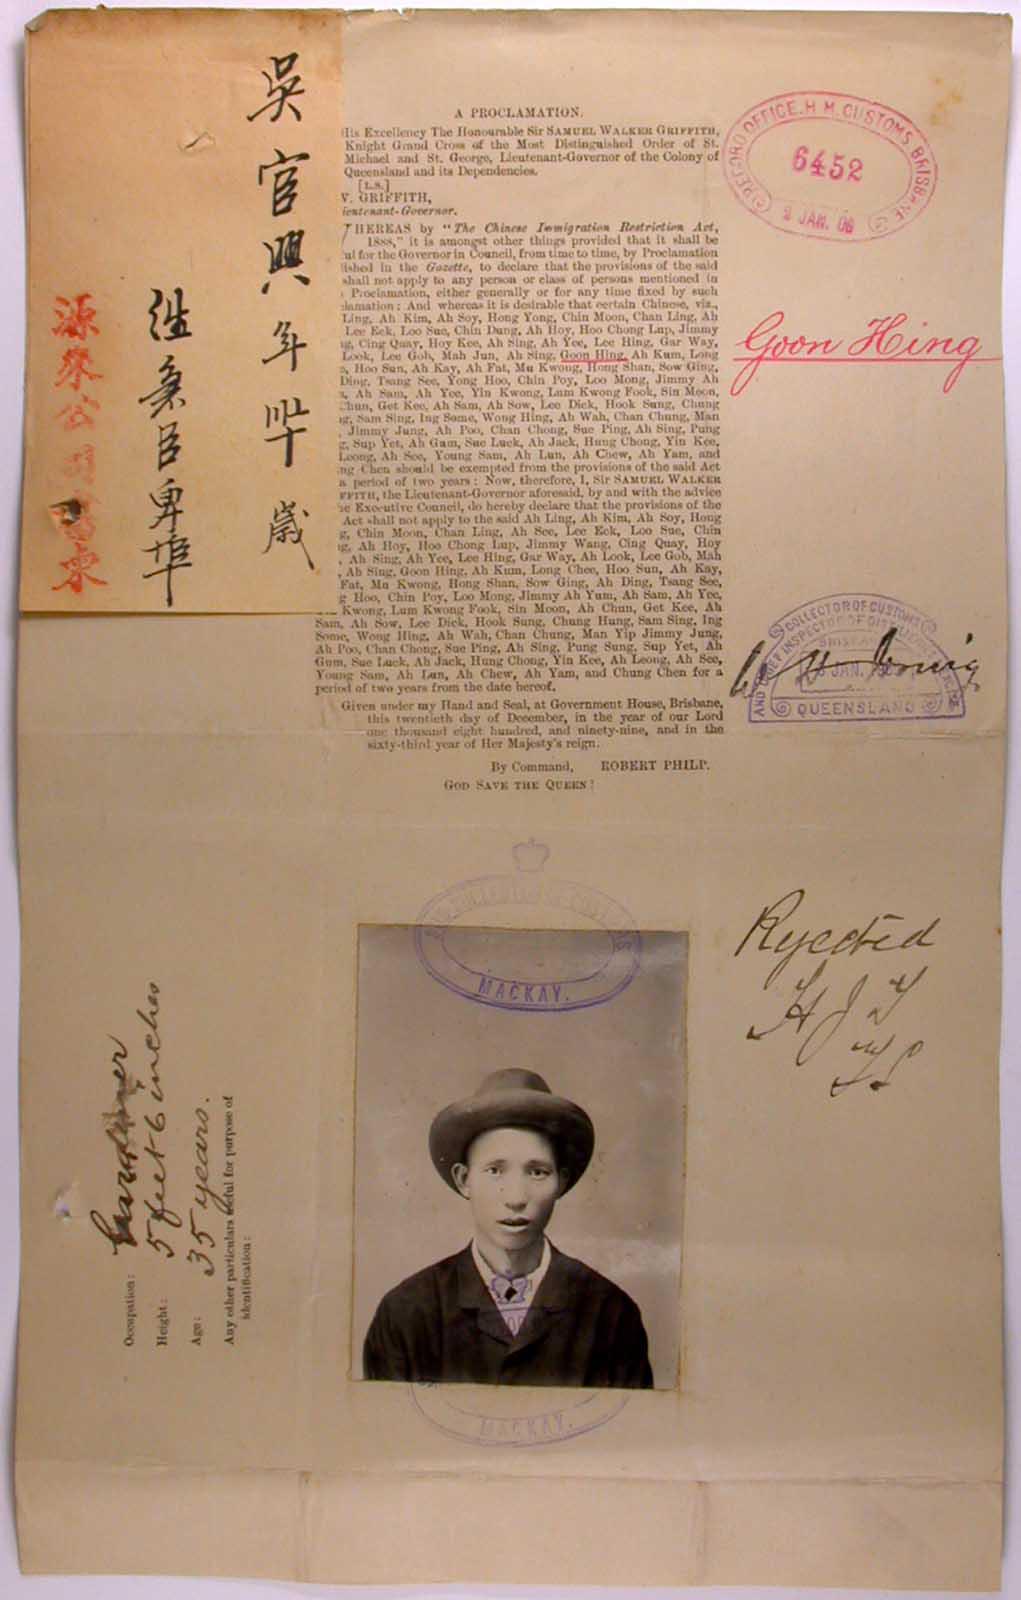 吳官興年卅歲
源來公司
A PROCLAMATION.
His Excellency The Honourable Sir SAMUEL WALKER GRIFFITH,
Knight Grand Cross of the Most Distinguished Order of St.
Michael and St. George, Lieutenant-Governor of the Colony of
Queensland and its Dependencies.
[L.S.]
W. GRIFFITH,
Lieutenant-Governor.
HEREAS by "The Chinese Immigration Restriction Act,
1888," it is amongst other things provided that it shall be
ful for the Governor in Council, from time to time, by Proclamation
lished in the Gazette, to declare that the provisions of the said
shall not apply to any person or class of persons mentioned in
Proclamation, either generally or for any time fixed by such
lamation: And whereas it is desirable that certain Chinese, viz.,
Ling, Ah Kim, Ah Soy, Hong Yong, Chin Moon, Chan Ling, Ah
Lee Eck, Loo Sue, Chin Dung, Ah Hoy, Hoo Chong Lup, Jimmy
g, Cing Quay, Hoy Kee, Ah Sing, Ah Yee, Lee Hing, Gar Way,
Look, Lee Gob, Mah Jun, Ah Sing, Goon Hing, Ah Kum, Long
Hoo Sun, Ah Kay, Ah Fat, Mu Kwong, Hong Shan, Sow Ging,
Ding, Tsang See, Yong Hoo, Chin Poy, Loo Mong, Jimmy Ah
Ah Sam, Ah Yee, Yin Kwong, Lum Kwong Fook, Sin Moon,
Chun, Get Kee, Ah Sam, Ah Sow, Lee Dick, Hook Sung, Chung
g, Sam Sing, Ing Some, Wong Hing, Ah Wah, Chan Chung, Man
Jimmy Jung, Ah Poo, Chan Chong, Sue Ping, Ah Sing, Pung
g, Sup Yet, Ah Gum, Sue Luck, Ah Jack, Hung Chong, Yin Kee,
Leong, Ah See, Young Sam, Ah Lun, Ah Chew, Ah Yam, and
ng Chen should be exempted from the provisions of the said Act
a period of two years: Now, therefore, I, Sir SAMUEL WALKER
FFITH, the Lieutenant-Governor aforesaid, by and with the advice
he Executive Council, do hereby declare that the provisions of the
Act shall not apply to the said Ah Ling, Ah Kim, Ah Soy, Hong
g, Chin Moon, Chan Ling, Ah See, Lee Eck, Loo Sue, Chin
g, Ah Hoy, Hoo Chong Lup, Jimmy Wang, Cing Quay, Hoy
, Ah Sing, Ah Yee, Lee Hing, Gar Way, Ah Look, Lee Gob, Mah
, Ah Sing, Goon Hing, Ah Kum, Long Chee, Hoo Sun, Ah Kay,
Fat, Mu Kwong, Hong Shan, Sow Ging, Ah Ding, Tsang See,
g Hoo, Chin Poy, Loo Mong, Jimmy Ah Yum, Ah Sam, Ah Yee,
Kwong, Lum Kwong Fook, Sin Moon, Ah Chun, Get Kee, Ah
Sam, Ah Sow, Lee Dick, Hook Sung, Chung Hung, Sam Sing, Ing
Some, Wong Hing, Ah Wah, Chan Chung, Man Yip Jimmy Jung,
Ah Poo, Chan Chong, Sue Ping, Ah Sing, Pung Sung, Sup Yet, Ah
Gum, Sue Luck, Ah Jack, Hung Chong, Yin Kee, Ah Leong, Ah See,
Young Sam, Ah Lun, Ah Chew, Ah Yam, and Chung Chen for a
period of two years from the date hereof.
Given under my Hand and Seal, at Government House, Brisbane,
this twentieth day of December, in the year of our Lord
one thousand eight hundred, and ninety-nine, and in the
sixty-third year of Her Majesty's reign.
By Command, ROBERT PHILP.
GOD SAVE THE QUEEN!
RECORD OFFICE. H.M. CUSTOMS BRISBANE
6452
3 JAN. 06
Goon Hing
COLLECTOR OF CUSTOMS
AND CHIEF INSPECTOR OF DISTILLERIES
BRISBANE
JAN.
QUEENSLAND
MACKAY.
Rejected
H J T
Occupation: Gardener
Height: 5 feet 6 inches
Age: 35 years.
Any other particulars useful for purpose of
identification:
MACKAY.